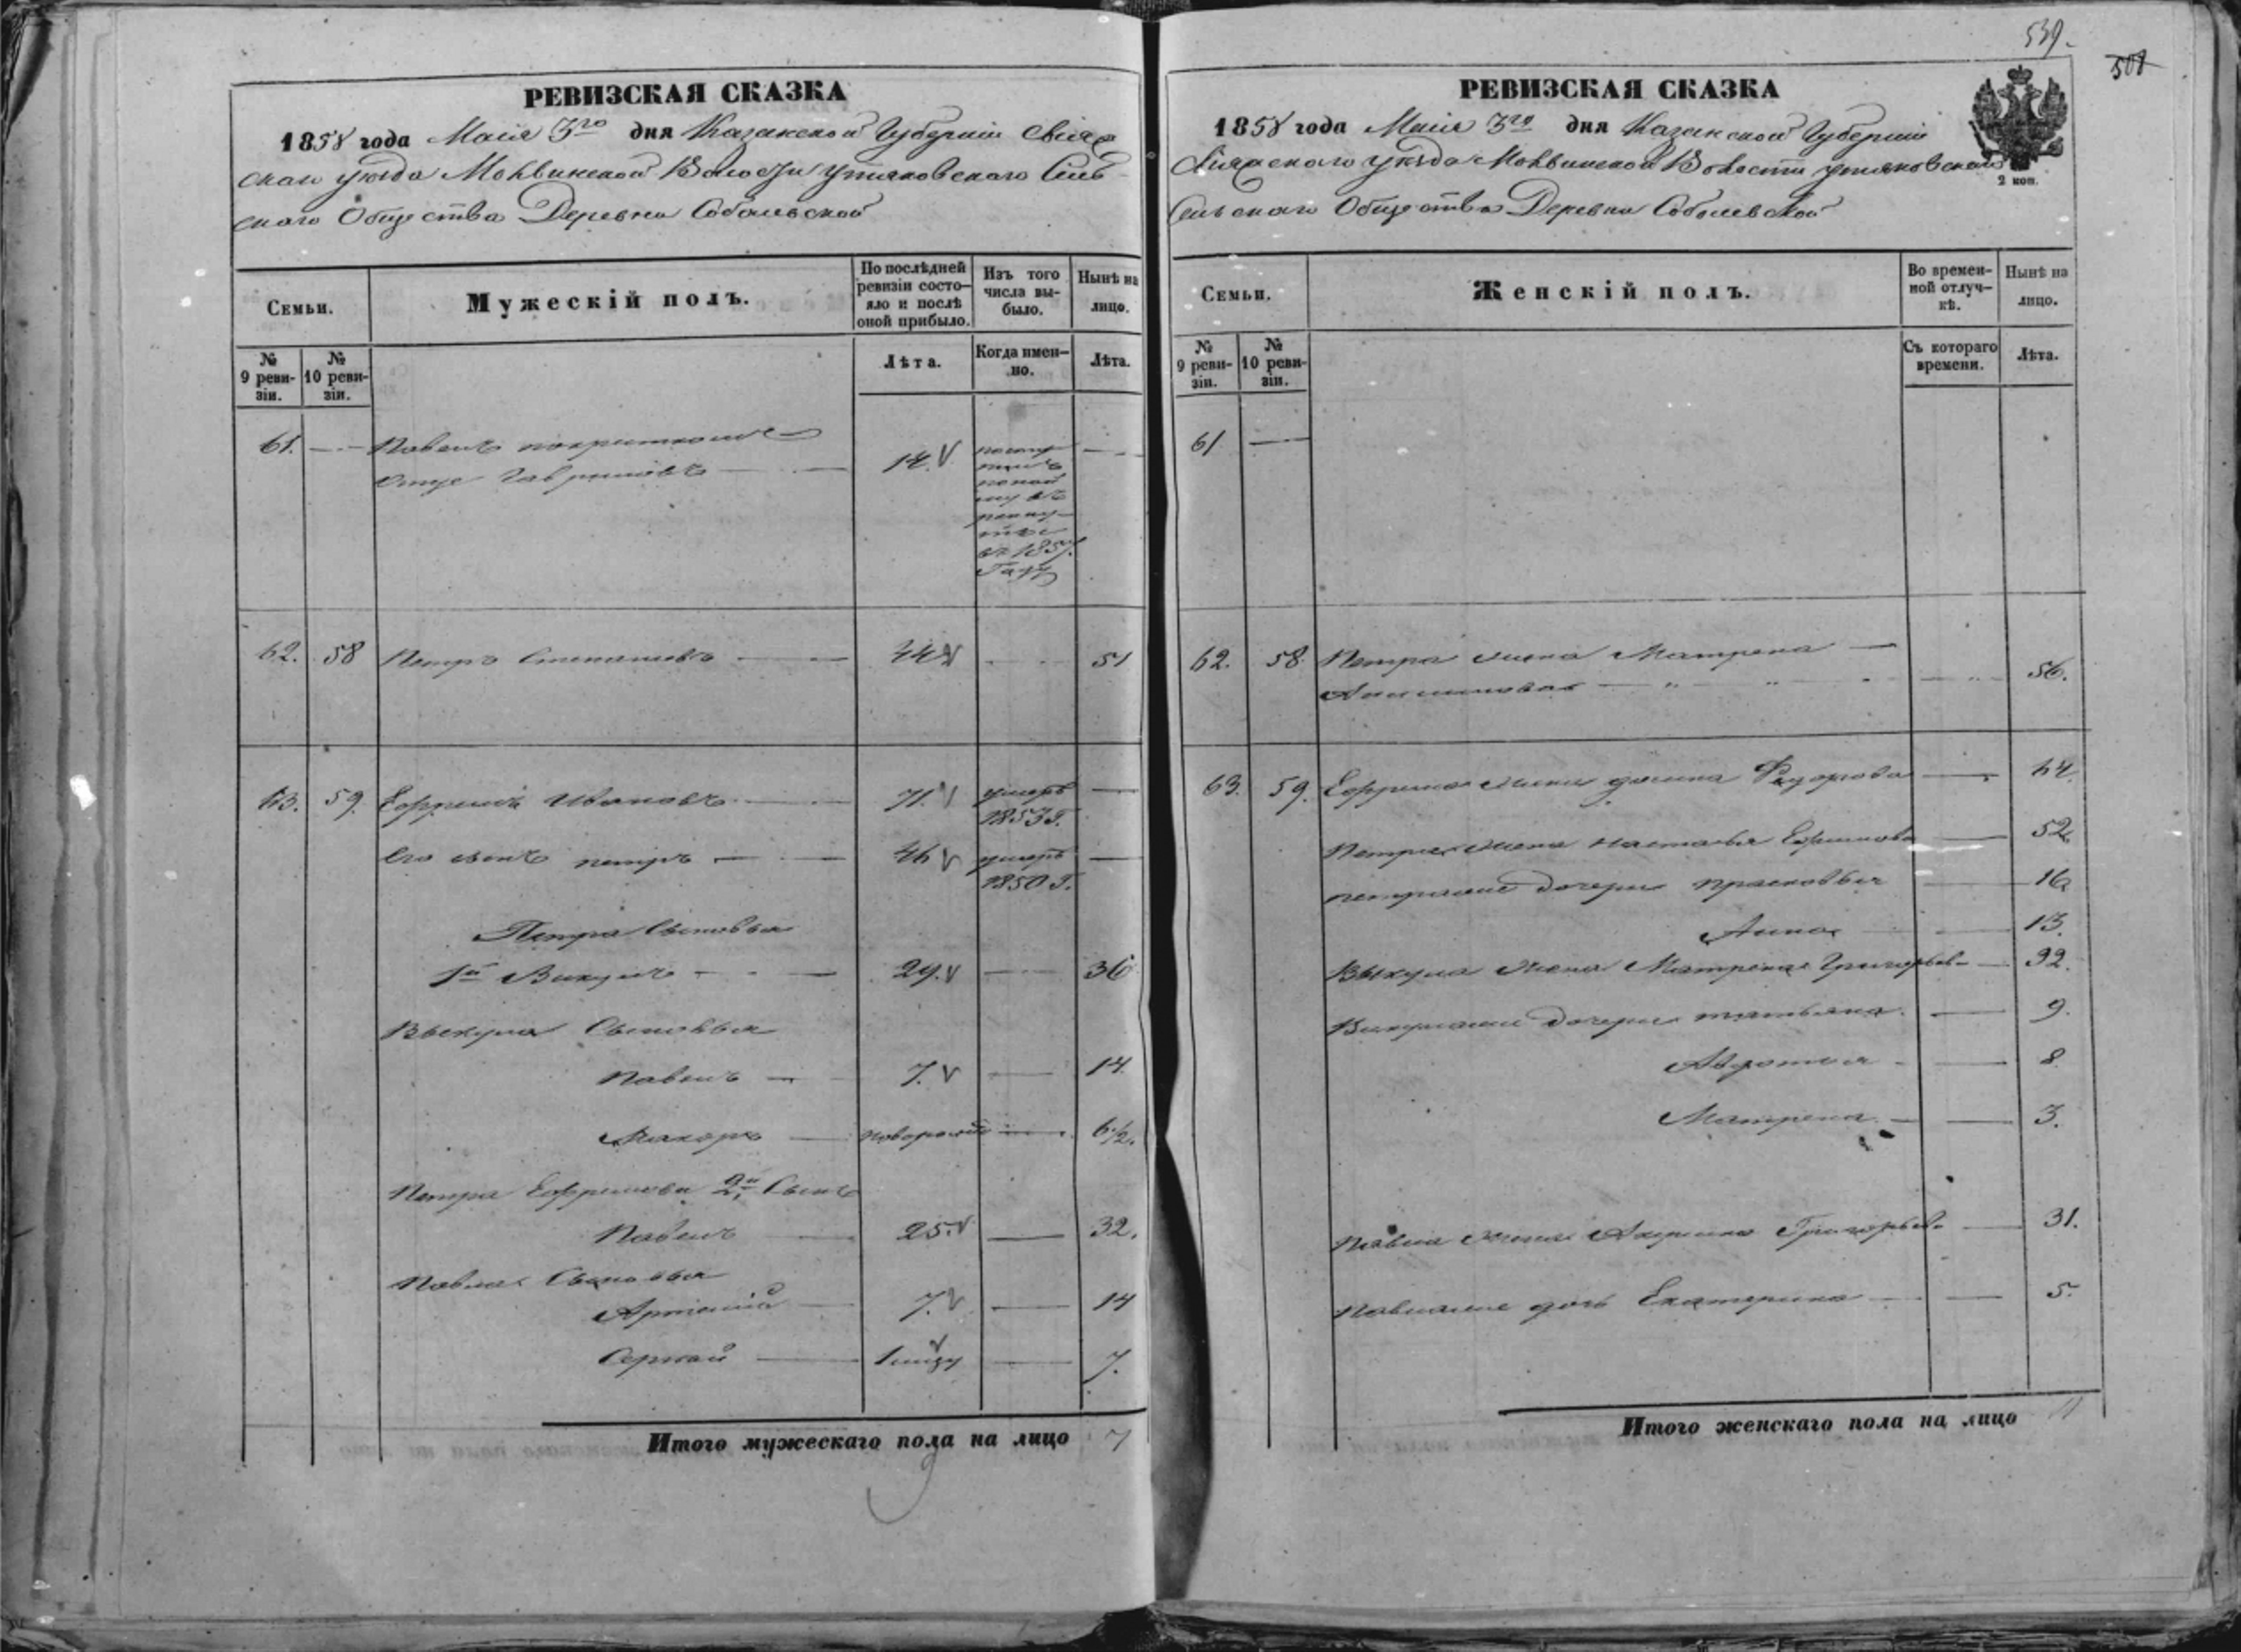 539.
501
РЕВИЗСКАЯ СКАЗКА
1858 года Маія 3го дня Казанской Губерніи Свіяж
скаго уѣзда Моквинской Волости Утяковскаго Сель
скаго Общества Деревни Соболевской
Семьи.
Мужескій полъ.
По послѣдней ревизіи состояло и послѣ оной прибыло.
Изъ того числа выбыло.
Нынѣ на лицо.
№ 9 ревизіи.
№ 10 ревизіи.
Лѣта.
Когда именно.
Лѣта.
61. — Павелъ
Гавриловъ — 14.
въ рекруты
въ 1857.
Году —
62. 58 Петръ Степановъ — 44 — 51
63. 59. Ефремъ Ивановъ — 71. умеръ 1853 г. —
Его сынъ петръ — 46 умеръ 1850 г. —
Петра Сыновья
1й Викулъ — 29. — 36
Выкула Сыновья
Павелъ — 7. — 14.
Макаръ — новорожд — 6 1/2.
Петра Ефремова 2й Сынъ
Павелъ — 25. — 32.
Павла Сыновья
Артемій — 7. — 14
Сергей — — 7.
Итого мужескаго пола на лицо 7
РЕВИЗСКАЯ СКАЗКА
2 коп.
1858 года Маія 3го дня Казанской Губерніи
Свіяжскаго уѣзда Моквинской Волости Утяковскаго
Сельскаго Общества Деревни Соболевской
Семьи.
Женскій полъ.
Во временной отлучкѣ.
Нынѣ на лицо.
№ 9 ревизіи.
№ 10 ревизіи.
Съ котораго времени.
Лѣта.
61 —
62. 58. Петра жена Матрена —
— 56.
63. 59. Ефрема жена Федорова — 64.
Петра жена Настасья Ефимова — 52
петровые дочери прасковья — 16
Анна — 13.
Выкула жена Матрена Григорьева — 32.
Викуловые дочери татьяна — 9.
Авдотья — 8.
Матрена — 3.
Павла жена Акулина Григорьева — 31.
Павловые дочь Екатерина — 5.
Итого женскаго пола на лицо 11